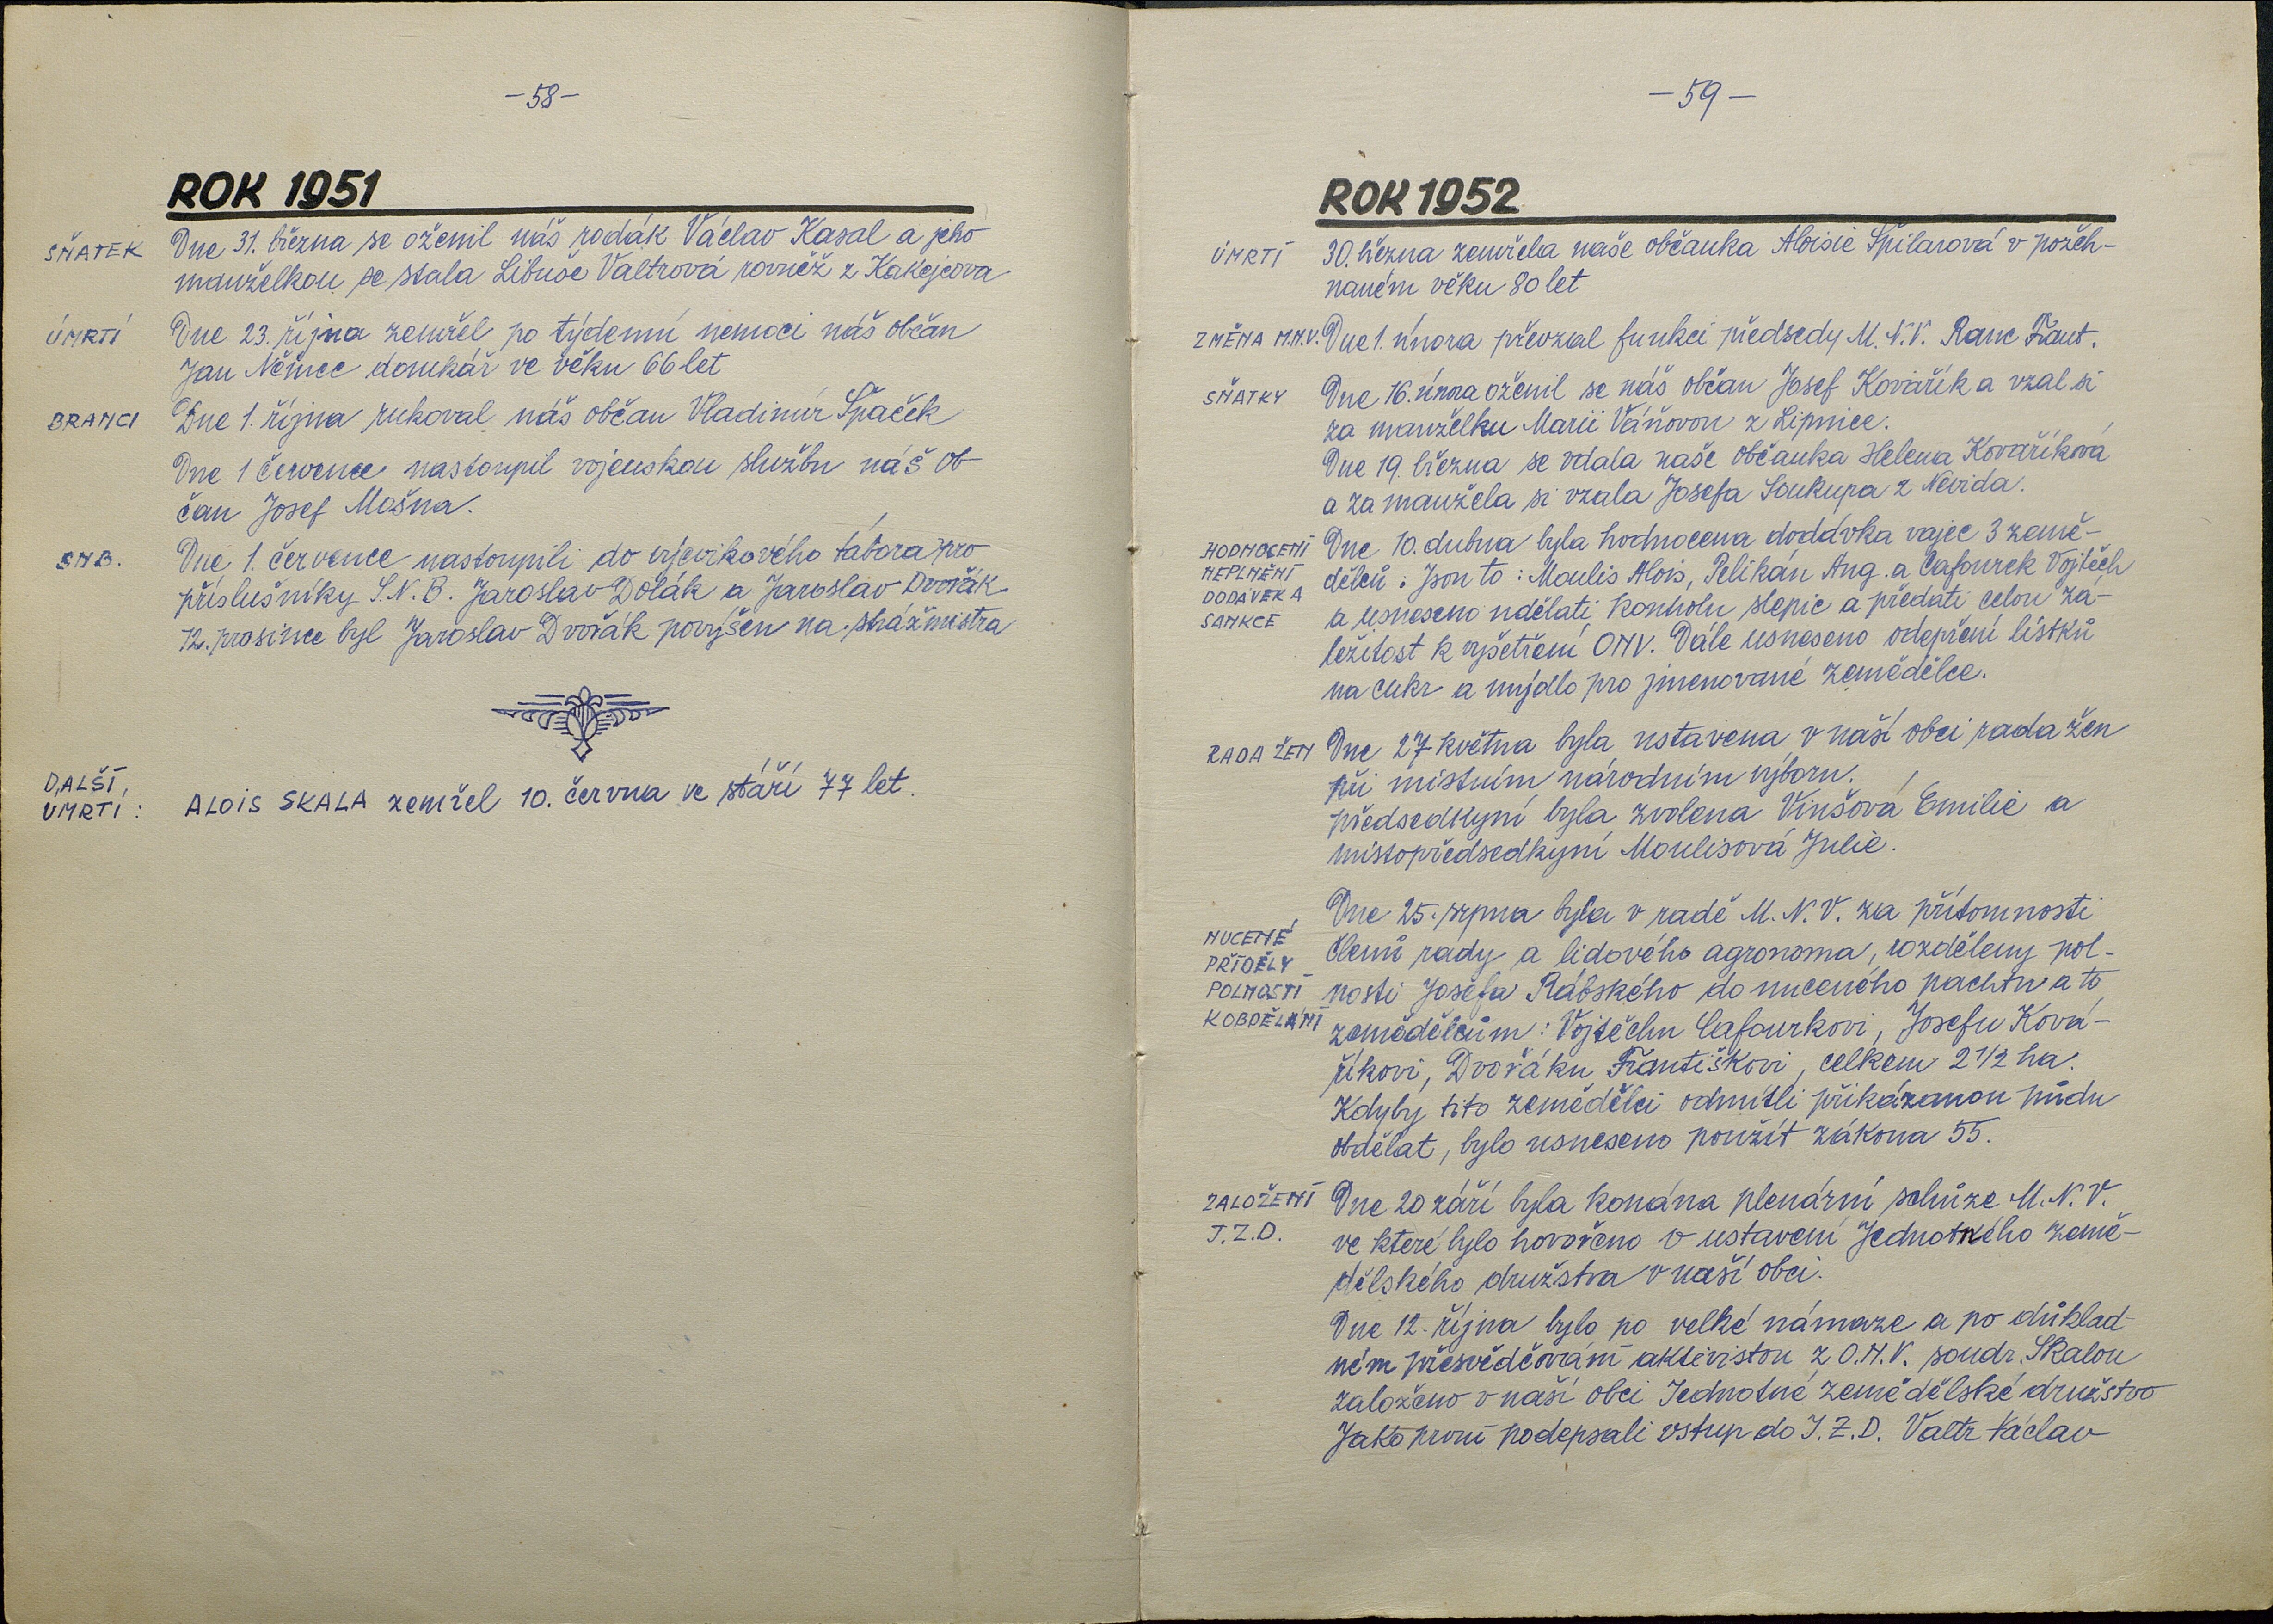 -58-
ROK 1951
SŇATEK Dne 31. března se oženil náš rodák Václav Kasal a jeho
manželkou se stala Libuše Valtrová rovněž z Kakejcova
ÚMRTÍ Dne 23. října zemřel po týdenní nemoci náš občan
Jan Němec domkář ve věku 66 let
BRANCI Dne 1. října rukoval náš občan Vladimír Špaček
Dne 1 července nastoupil vojenskou službu náš ob-
čan Josef Mošna.
SNB. Dne 1. července nastoupili do výcvikového tábora pro
příslušníky S.N.B. Jaroslav Dolák a Jaroslav Dvořák.
12. prosince byl Jaroslav Dvořák povýšen na strážmistra
DALŠÍ
ÚMRTÍ: ALOIS SKALA zemřel 10. června ve stáří 77 let.
-59-
ROK 1952
ÚMRTÍ 30. března zemřela naše občanka Aloisie Špilarová v požeh-
naném věku 80 let
ZMĚNA M.N.V. Dne 1. února převzal funkci předsedy M.N.V. Ranc Frant.
SŇATKY Dne 16. února oženil se náš občan Josef Kovářík a vzal si
za manželku Marii Váňovou z Lipnice.
Dne 19. března se vdala naše občanka Helena Kovaříková
a za manžela si vzala Josefa Soukupa z Nevida.
HODNOCENÍ Dne 10. dubna byla hodnocena dodávka vajec 3 země-
NEPLNĚNÍ dělců. Jsou to: Moulis Alois, Pelikán Aug. a Cafourek Vojtěch
DODÁVEK A a usneseno udělati kontrolu slepic a předati celou zá-
SANKCE ležitost k vyšetření ONV. Dále usneseno odepření lístků
na cukr a mýdlo pro jmenované zemědělce.
RADA ŽEN Dne 27 května byla ustavena v naší obci rada žen
při místním národním výboru.
předsedkyní byla zvolena Vinšová Emilie a
místopředsedkyní Moulisová Julie.
Dne 25. srpna byla v radě M.N.V. za přítomnosti
NUCENÉ členů rady a lidového agronoma, rozděleny pol-
PŘÍDĚLY
POLNOSTÍ nosti Josefa Rábského do nuceného pachtu a to
K OBDĚLÁNÍ zemědělcům: Vojtěchu Cafourkovi, Josefu Ková-
říkovi, Dvořáku Františkovi, celkem 2 1/2 ha.
Kdyby tito zemědělci odmítli přikázanou půdu
obdělat, bylo usneseno použít zákona 55.
ZALOŽENÍ Dne 20 září byla konána plenární schůze M.N.V.
J.Z.D. ve které bylo hovořeno o ustavení Jednotného země-
dělského družstva v naší obci.
Dne 12. října bylo po velké námaze a po důklad-
ném přesvědčování aktivistou z O.N.V. soudr. Skalou
založeno v naší obci Jednotné zemědělské družstvo
Jako první podepsali vstup do J.Z.D. Valtr Václav